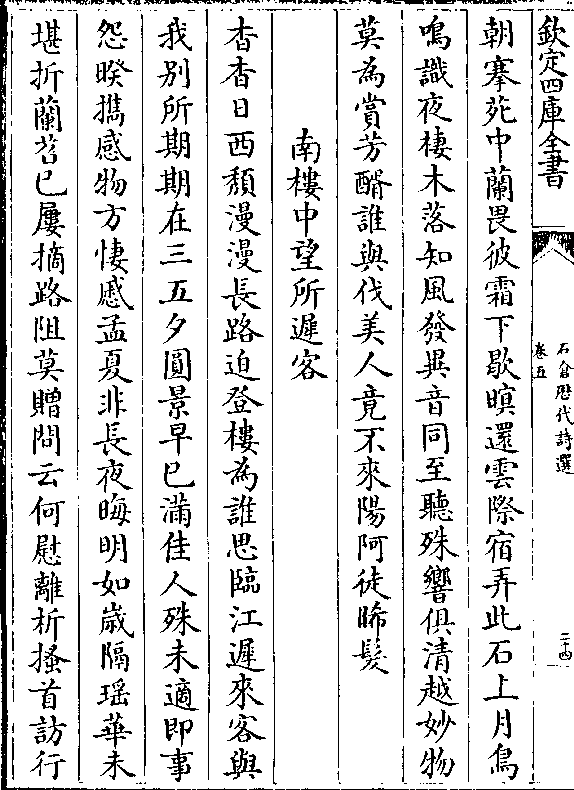 欽定四庫全書
石倉歴代詩選
卷五
二十四
朝搴苑中蘭畏彼霜下歇暝還雲際宿弄此石上月鳥
鳴識夜棲木落知風發異音同至聽殊響俱清越妙物
莫為賞芳醑誰與伐美人竟不來陽阿徒晞髮
南樓中望所遲客
杳杳日西頹漫漫長路迫登樓為誰思臨江遲來客與
我别所期期在三五夕圓景早已滿佳人殊未適即事
怨暌攜感物方悽戚孟夏非長夜晦明如歳隔瑶華未
堪折蘭苕已屢摘路阻莫贈問云何慰離析搔首訪行